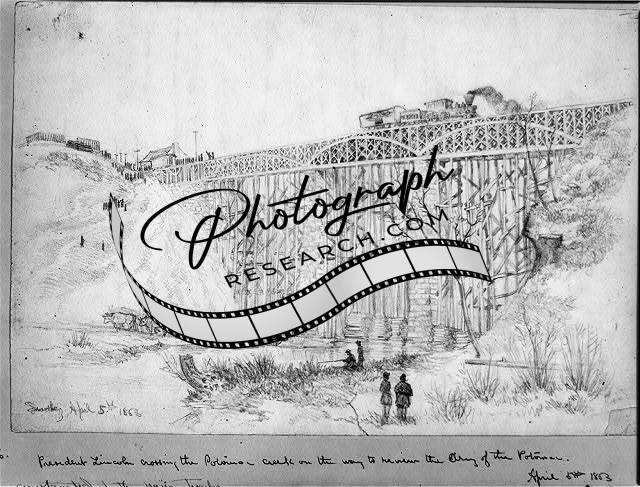 Photograph
RESEARCH.COM
Sunday April 5th 1863
President Lincoln crossing the Potomac creek on the way to review the Army of the Potomac.
April 5th 1863